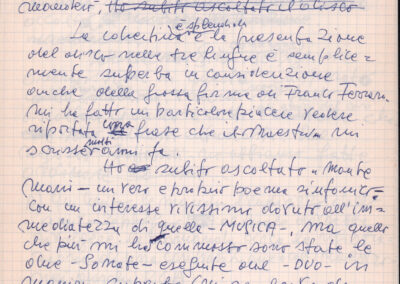 Ho subito ascoltato il disco
è splendida
La copertina e la presentazione
del disco nelle tre lingue è semplice=
mente superba in considerazione
anche della grossa firma di Franco Ferrara.
mi ha fatto un particolare piacere vedere
riportata frase che il Maestro mi
scrisse molti anni fa.
Ho subito ascoltato "Monte
Mari" un vero e proprio poema sinfonico
con un interesse vivissimo dovuto all'im=
mediatezza di quella -MUSICA-, ma quello
che più mi ha commosso sono state le
due -Sonate- eseguite dal -DUO- in